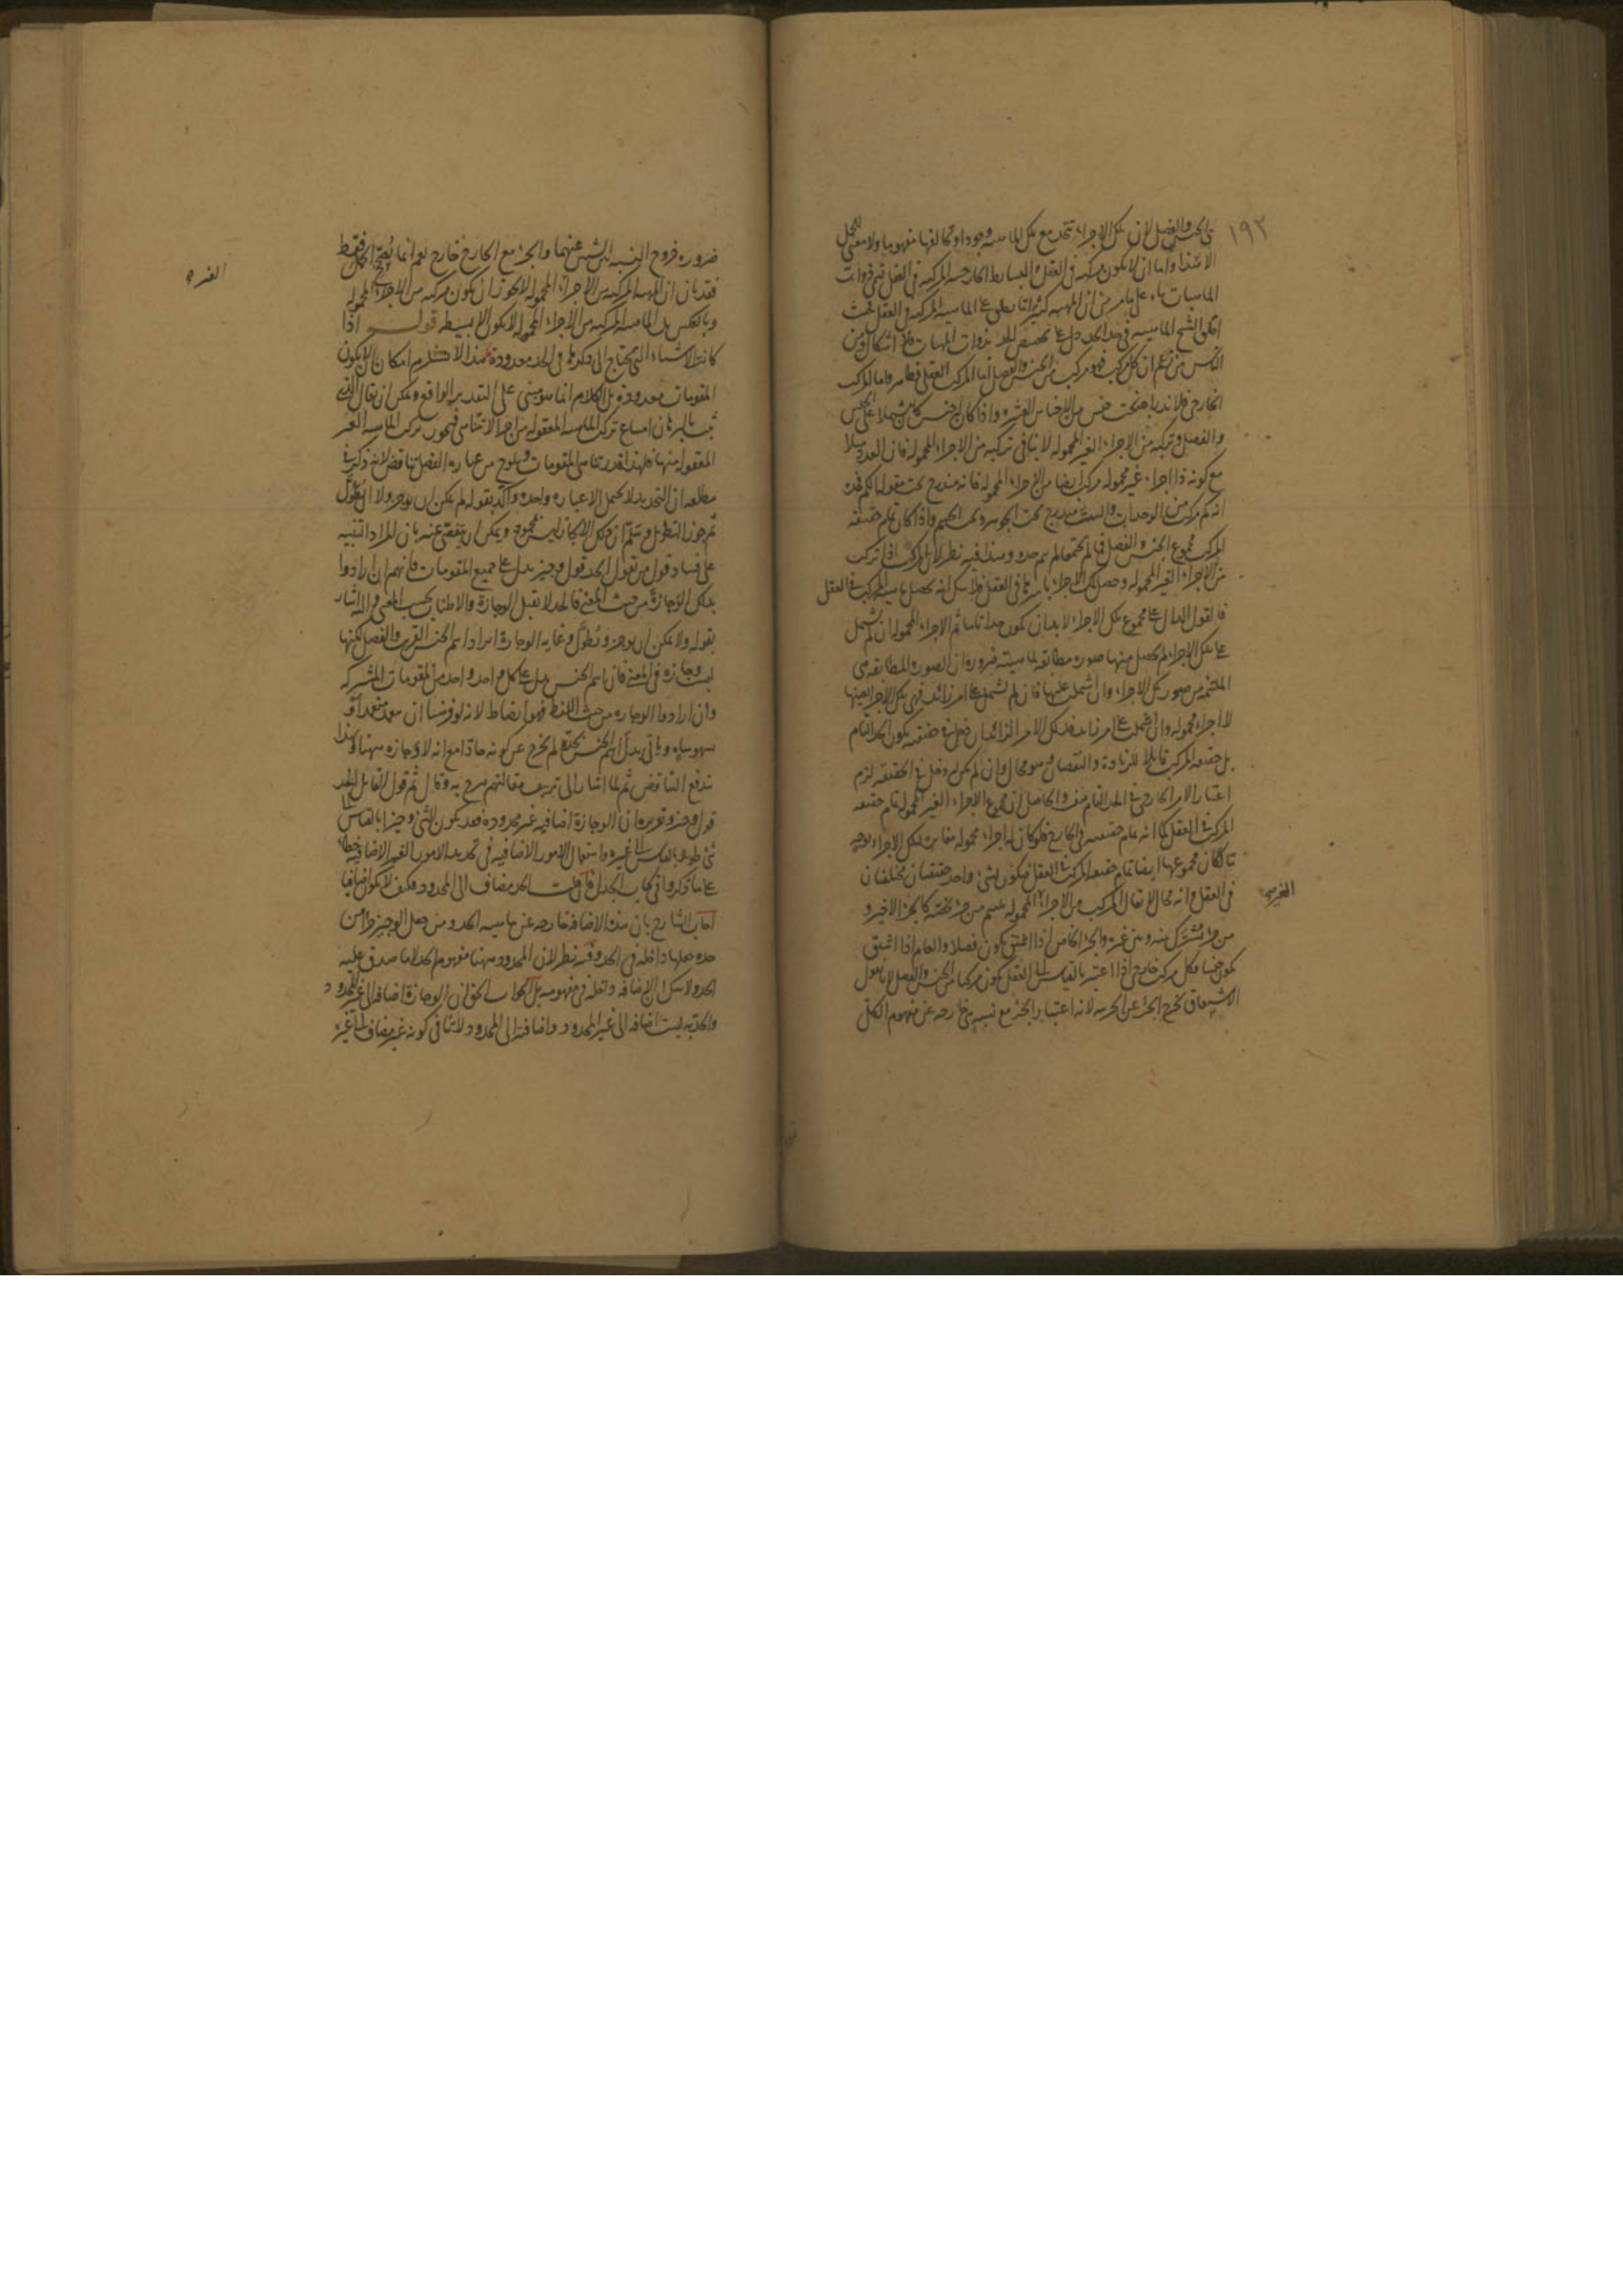 ١٩٢
الجنس والفصل لان تلك الاجزاء تتحد مع تلك الماهيه وجودا وتخالفها مفهوما ولا معنى للحمل
الا هذا واما ان لا يكون مركبه فى العقل والبسايط الخارجيه المركبه فى العقل فهى ذوات
الماهيات بناء على ما مر من ان المهيه كثيرا ما يطلق على الماهيه المركبه فى العقل فحيث
اطلق الشيخ الماهيه فى هذا الحد دل على تخصيص الحد بذوات المهيات فلا اشكال ومن
الناس من زعم ان كل مركب فهو مركب من الجنس والفصل اما المركب العقلى فظاهر واما المركب
الخارجى فلاندراجه تحت جنس من الاجناس العشره واذا كان له جنس كان مشتملا على الجنس
والفصل وتركبه من الاجزاء الغير المحموله لا ينافى تركبه من الاجزاء المحموله فان العدد مثلا
مع كونه ذا اجزاء غير محموله مركب ايضا من الاجزاء المحموله فانه مندرج تحت مقوله الكم فحده
انه كم مركب من الوحدات والبيت مندرج تحت الجوهر وتحت الجسم واذا كان تمام حقيقه
المركب مجموع الجنس والفصل فما لم يجتمعا لم يتم حده وهذا فيه نظر لان المركب اذا تركب
من الاجزاء الغير المحموله وحصل تلك الاجزاء باسرها فى العقل فلا شك انه يحصل ماهيه المركب فى العقل
فالقول الدال على مجموع تلك الاجزاء لا بد ان يكون حدا تاما ثم الاجزاء المحموله ان لم يشتمل
على تلك الاجزاء لم يحصل منها صوره مطابقه لماهيته ضروره ان الصوره المطابقه هى
الملتئمه من صور تلك الاجزاء وان اشتملت عليها فان لم تشتمل على امر زائد فهى تلك الاجزاء بعينها
لا اجزاء محموله وان اشتمل على امر زائد فذلك الامر الزائد ان دخل فى حقيقته يكون الحد التام
بل حقيقه المركب قابلا للزيادة والنقصان وهو محال وان لم يكن له دخل فى الحقيقه لزم
اعتبار الامر الخارجى فى الحد التام هف والحاصل ان مجموع الاجزاء الغير المحموله تمام حقيقه
المركب فى العقل كما انه تمام حقيقته فى الخارج فلو كان له اجزاء محموله مغايره لتلك الاجزاء بوجه
ما لكان مجموعها ايضا تمام حقيقه المركب فى العقل فيكون لشئ واحد حقيقتان مختلفتان
فى العقل وانه محال لا يقال المركب من الاجزاء الغير المحموله يلتئم من جزء يخصه كالجزء الاخير و
من جزء مشترك بينه وبين غيره والجزء الخاص اذا اشتق يكون فصلا والعام اذا اشتق
يكون جنسا فكل مركب خارجى اذا اعتبر بالقياس الى العقل يكون مركبا من الجنس والفصل لانا نقول
الاشتقاق يخرج الجزء عن الجزئيه لانه اعتبار الجزء مع نسبه هى خارجه عن مفهوم الكل
ضروره خروج النسبه بين الشيئين عنهما والجزء مع الخارج خارج نعم انما يصح الحمل فقط
فقد بان ان المهيه المركبه من الاجزاء الغير المحموله لا يجوز ان يكون مركبه من الاجزاء المحموله
وبالعكس بل الماهيه المركبه من الاجزاء المحموله لا يكون الا بسيطه قوله اذا
كانت الاشياء التى يحتاج الى ذكرها فى الحد معدودة هذا لا يستلزم امكان ان لا يكون
المقومات معدودة بل الكلام انما هو مبنى على التقدير الواقع ويمكن ان يقال الذى
ثبت بالبرهان امتناع تركب الماهيه المعقوله من اجزاء لا تتناهى فيجوز تركب الماهيه الغير
المعقوله منها فلهذا قدر تناهى المقومات ويلوح من عباره الفصل تناقض لانه ذكر فى
مطلعه ان التحديد لا يحتمل الا عباره واحده واكد بقوله لم يكن ان يوجز ولا ان يطول
ثم جوز التطويل وسلم ان ذلك الايجاز ليس بمحمود ويمكن ان يتفصى عنه بان المراد التنبيه
على فساد قول من يقول الحد قول وجيز يدل على جميع المقومات فانهم ان ارادوا
بذلك الوجازة من حيث المعنى فالحد لا يقبل الوجازة والاطناب بحسب المعنى واليه اشار
بقوله ولا يمكن ان يوجز ويطول وغايه الوجازة ايراد اسم الجنس القريب والفصل لكنها
ليست وجازه فى المعنى فان اسم الجنس يدل على كل واحد واحد من المقومات المشتركه
وان ارادوا الوجازه من حيث اللفظ فهو ايضا خطا لانه لو فرضنا ان يتعمد متعمد او
يسهو ساه وياتى بدل اسم الجنس بحده لم يخرج عن كونه حادا مع انه لا وجازه ههنا وبهذا
يندفع التناقض ثم لما اشار الى تزييف مقالتهم صرح به وقال ثم قول القايل الحد
قول وجيز وتقريره ان الوجازة اضافيه غير محدودة فقد يكون الشئ وجيزا بالقياس الى
شئ طويلا بالقياس الى غيره واستعمال الامور الاضافيه فى تحديد الامور الغير الاضافيه خطا
على ما ذكروا فى كتاب الجدل فان قلت الحد مضاف الى المحدود فكيف لا يكون اضافيا
اجاب الشارح بان هذه الاضافه خارجه عن ماهيه الحد ومن جعل الوجيز جزءا من
حده جعلها داخله فى الحد وفيه نظر لان المحدود ههنا مفهوم الحد لا ما صدق عليه
الحد ولا شك ان الاضافه داخله فى مفهومه بل الجواب الحق ان الوجازة اضافه الى غير المحدود
والحديه ليست اضافه الى غير المحدود واضافته الى المحدود لا ينافى كونه غير مضاف الى غيره